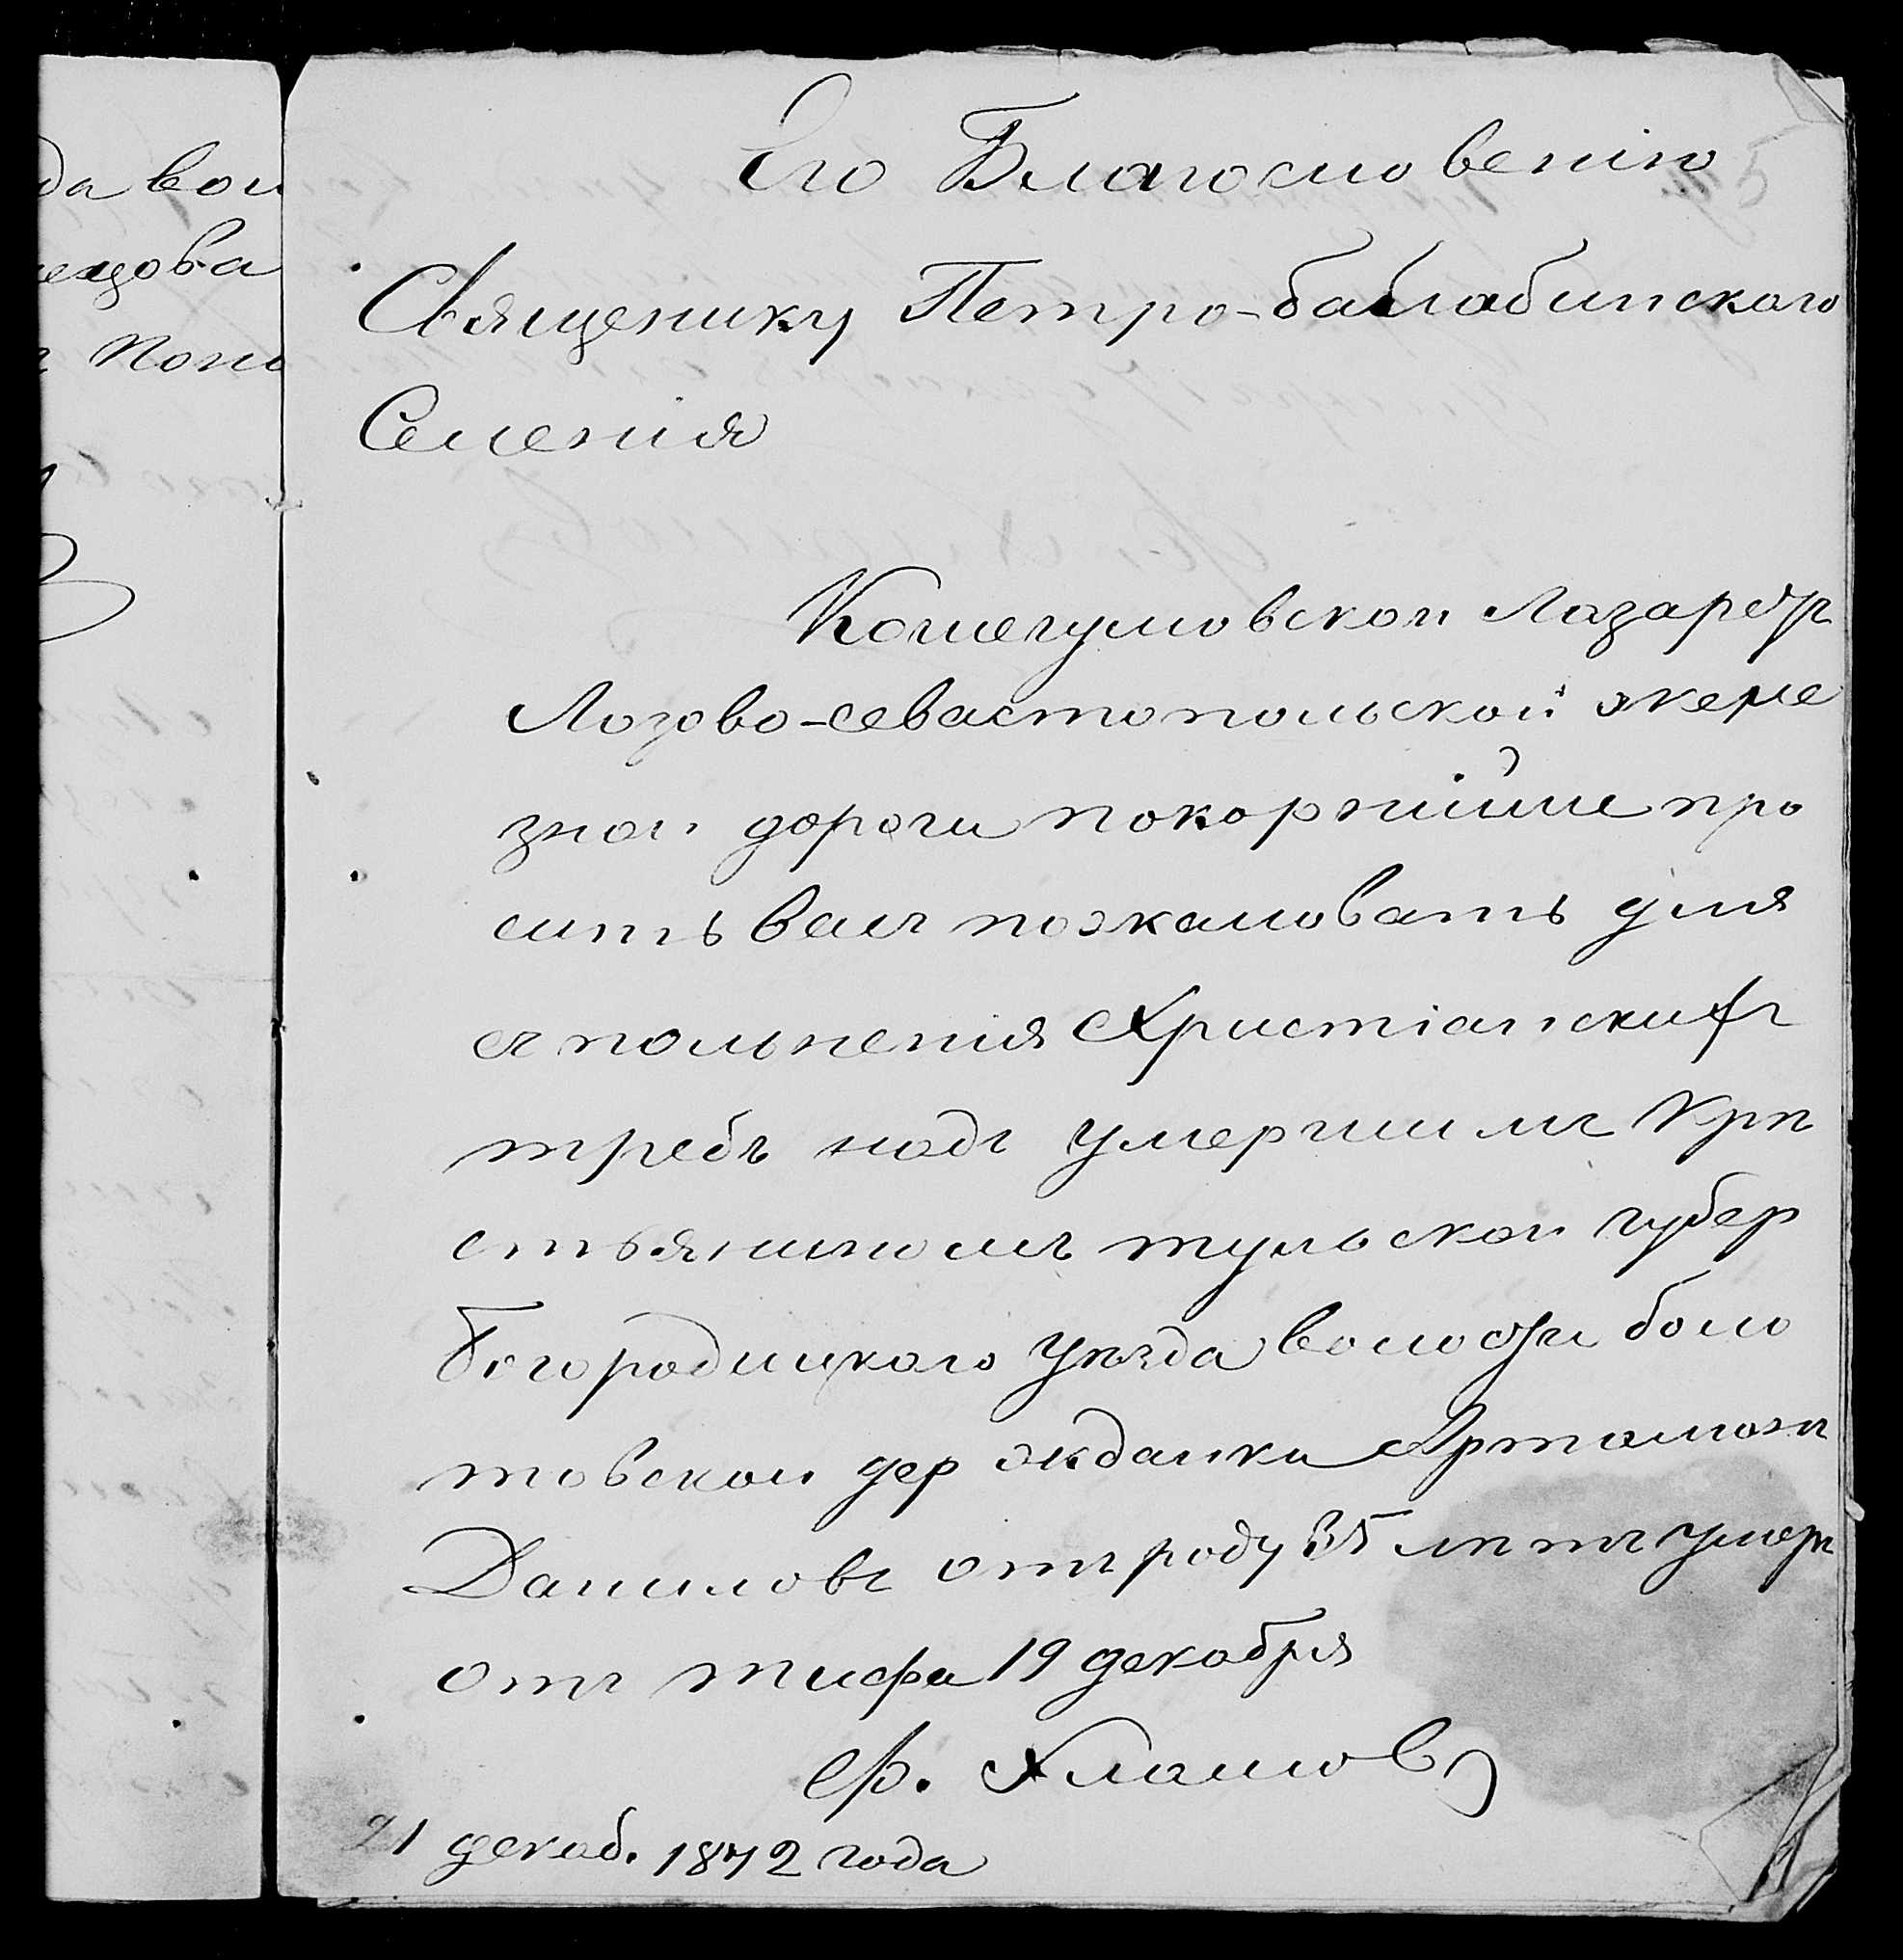 да вои
ещова
Попо
Его Благословению
Священику Петро-баблабинскаго
Селенія
Кошегумовскои Лазареть
Лозово-севастопольской желе
знои дороги покорнійше про
сить васъ пожаловать для
еъ польненія Христіанскихъ
требъ надъ умершимъ Крѣ
стьяниномъ тульскои губер
богородицкаго уѣзда волости боло
товскои дер ждамки Артамонъ
Даниловъ отъ роду 35 лѣтъ умеръ
отъ тифа 19 декабря
Ф. Хламовъ
21 декаб. 1872 года